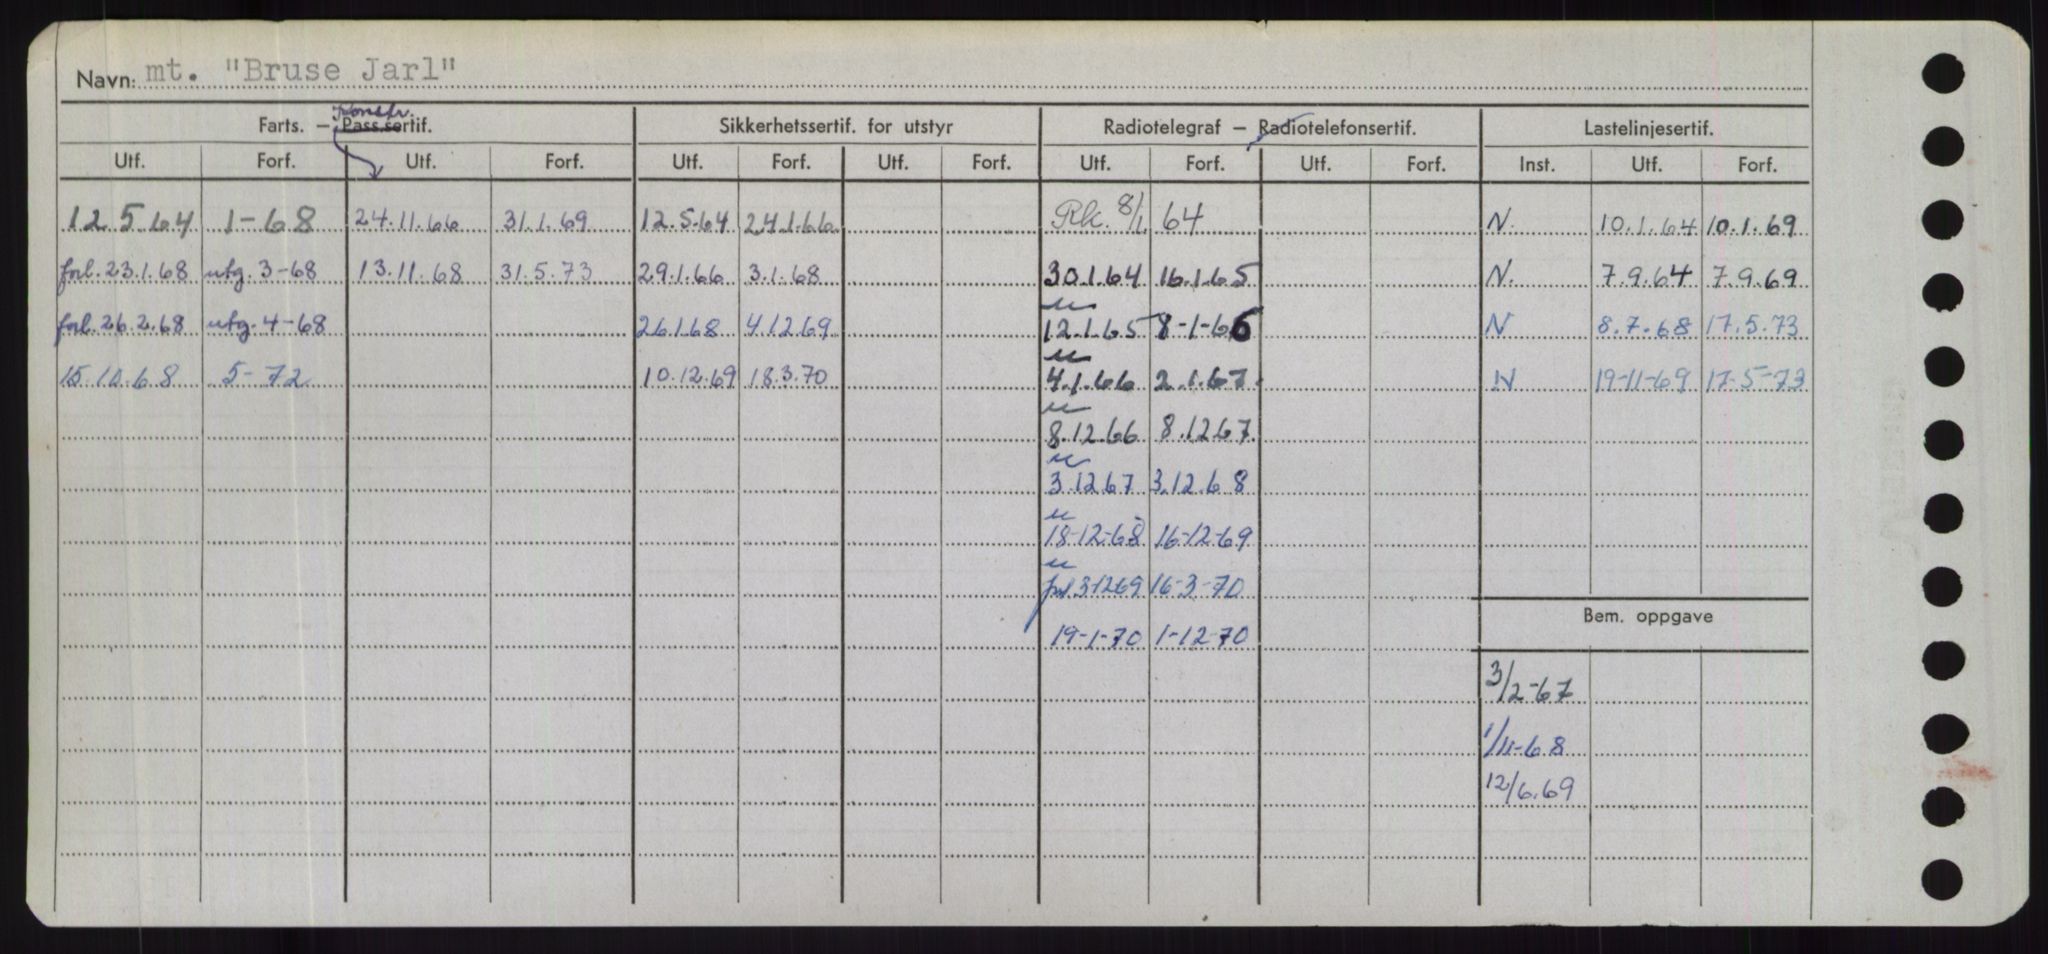 Navn: mt. "Bruse Jarl"
Konstr.
Farts. – Pass.sertif. Sikkerhetssertif. for utstyr Radiotelegraf – Radiotelefonsertif. Lastelinjesertif.
Utf. Forf. Utf. Forf. Utf. Forf. Utf. Forf. Utf. Forf. Utf. Forf. Inst. Utf. Forf.
12.5.64 1-68 24.11.66 31.1.69 12.5.64 24.1.66 Rk. 8/1 64 N. 10.1.64 10.1.69
forl.23.1.68 utg. 3-68 13.11.68 31.5.73 29.1.66 3.1.68 30.1.64 16.1.65 N. 7.9.64 7.9.69
forl.26.2.68 utg. 4-68 26.1.68 4.12.69 12.1.65 8-1-66 N 8.7.68 17.5.73
15.10.68 5-72 10.12.69 18.3.70 4.1.66 2.1.67. N 19-11-69 17-5-73
8.12.66 8.12.67
3.12.67 3.12.68
18-12-68 16-12-69
forl.3.12.69 16-3-70
Bem. oppgave
19-1-70 1-12-70
3/2-67
1/11-68
12/6.69